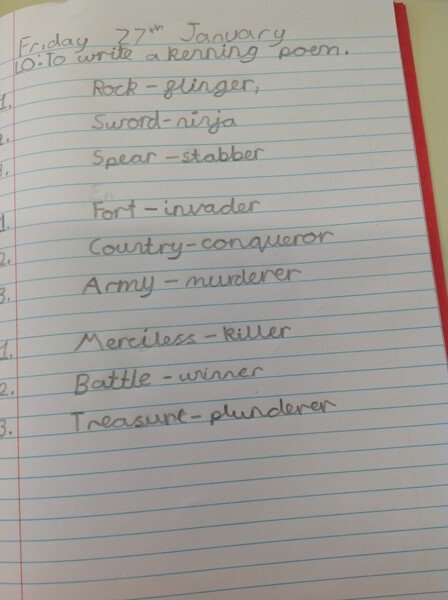 Friday 27th January
LO: To write a kenning poem.
1. Rock - flinger,
2. Sword - ninja
3. Spear - stabber
1. Fort - invader
2. Country - conqueror
3. Army - murderer
1. Merciless - killer
2. Battle - winner
3. Treasure - plunderer